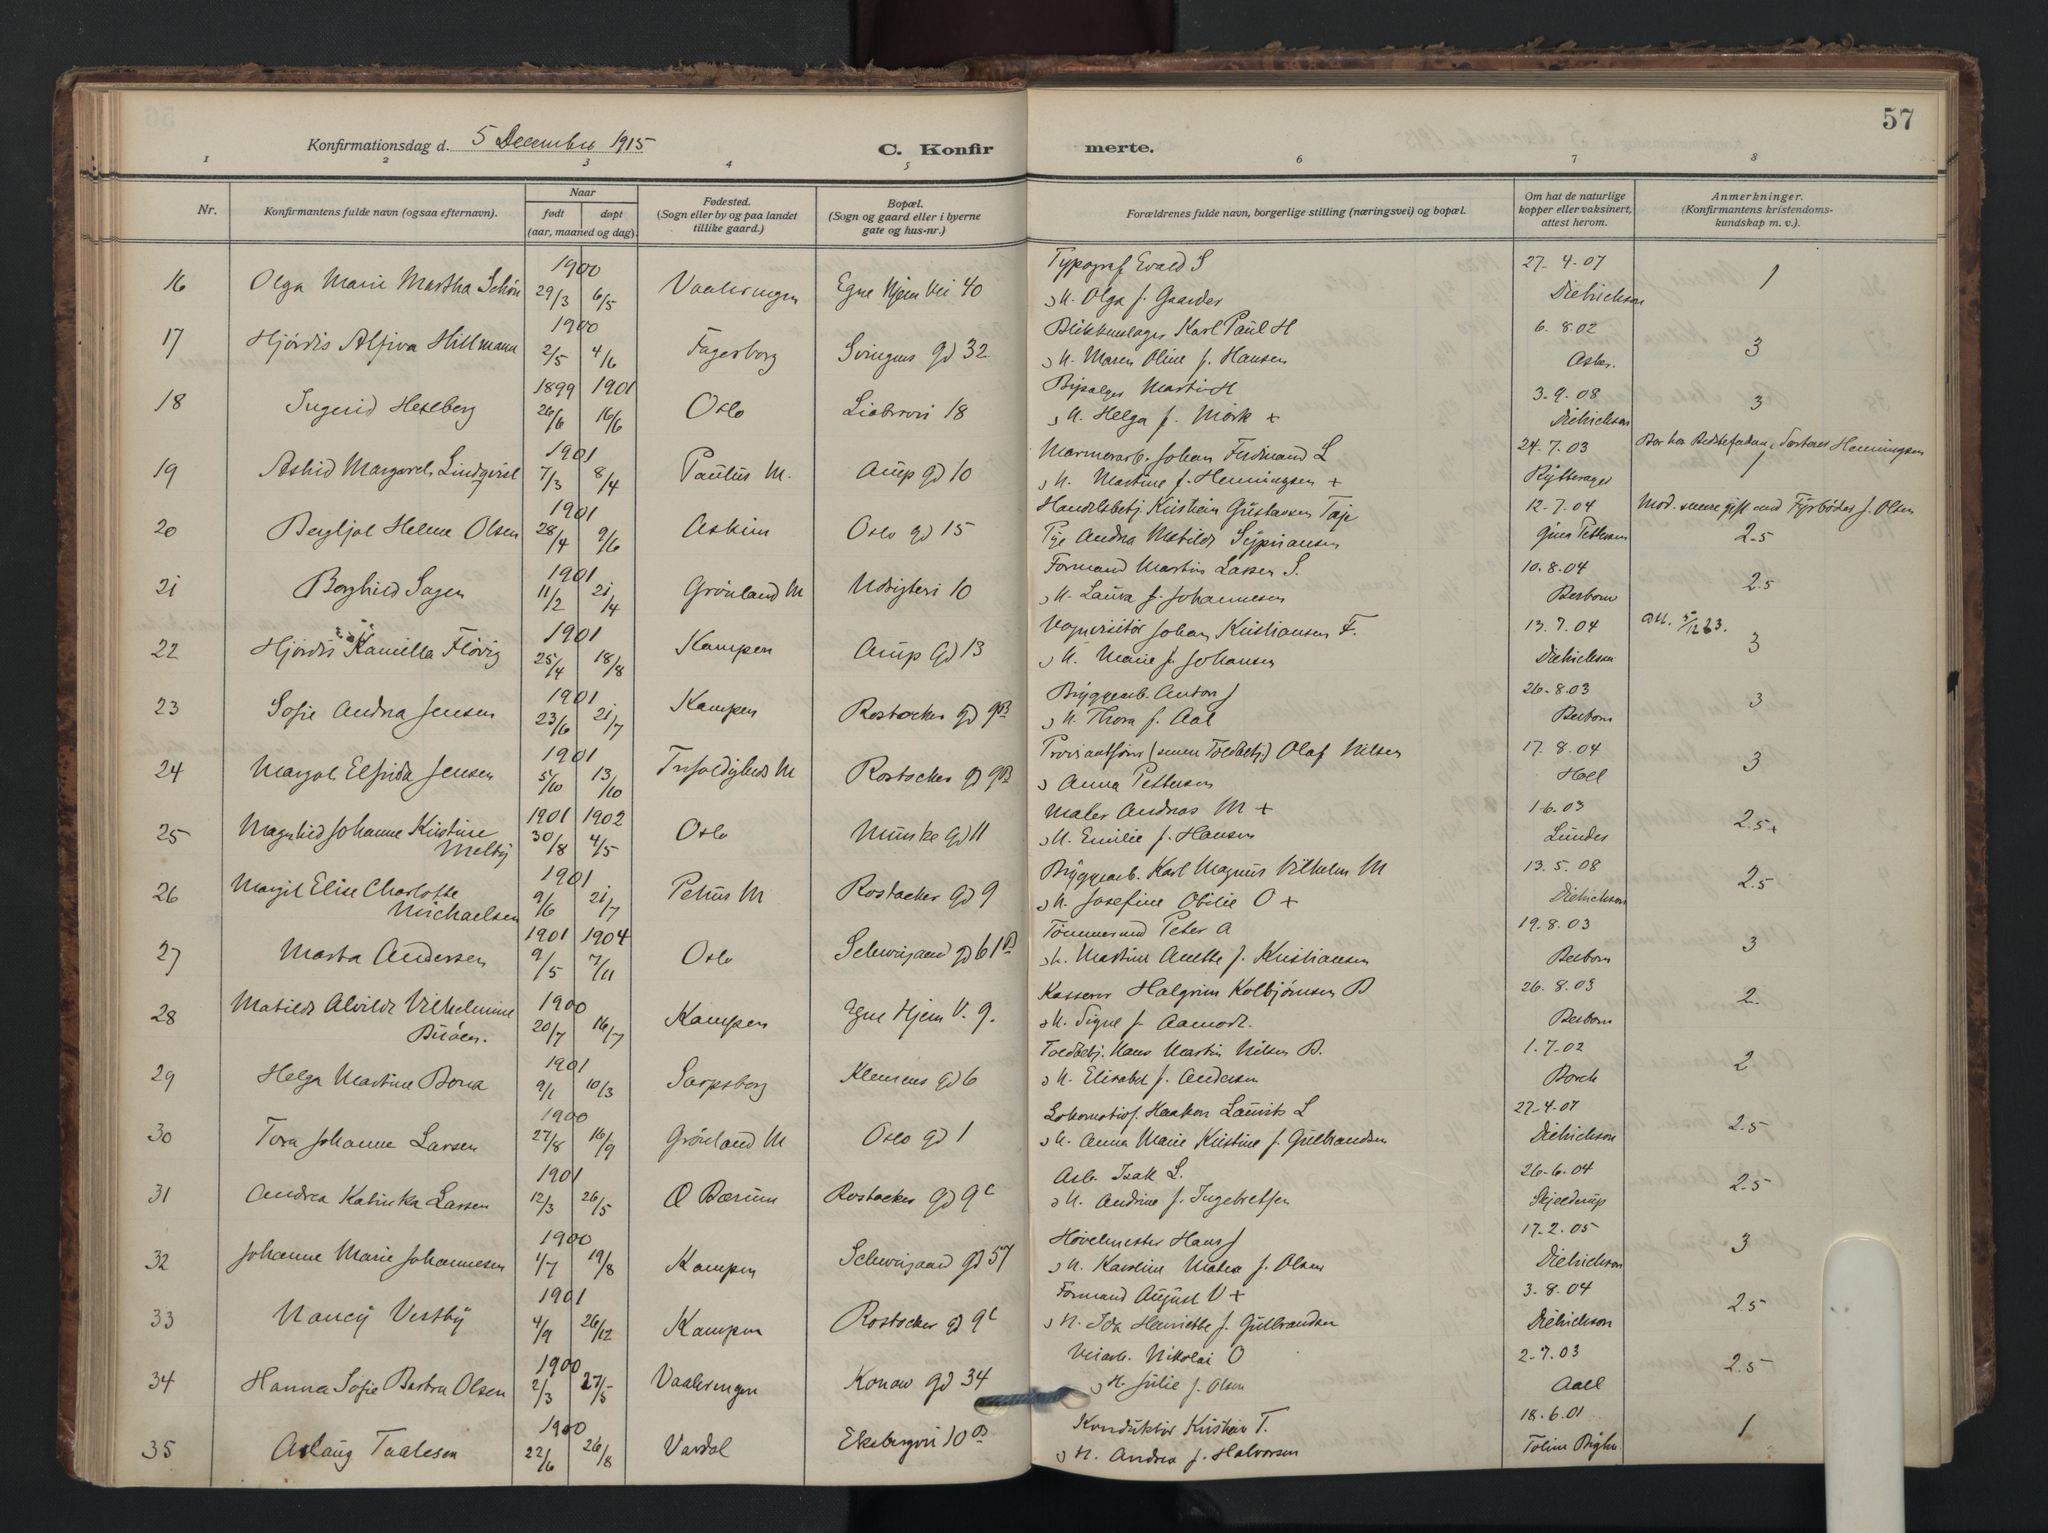 57
Konfirmationsdag d. 5 December 1915
C. Konfirmerte.
1 2 3 4 5 6 7 8
Nr.
Konfirmantens fulde navn (ogsaa efternavn).
Naar
født døpt
(aar, maaned og dag).
Fødested.
(Sogn eller by og paa landet
tillike gaard.)
Bopæl.
(Sogn og gaard eller i byerne
gate og hus-nr.)
Forældrenes fulde navn, borgerlige stilling (næringsvei) og bopæl.
Om hat de naturlige
kopper eller vaksinert,
attest herom.
Anmerkninger.
(Konfirmantens kristendoms-
kundskap m. v.).
1900 Typograf Evald S 27-4-07
16 Olga Marie Martha Schön 29/3 6/5 Vaalerengen Egne Hjem Vei 40 o H. Olga f. Gaarder Diedrichson 1
1900 Blikkenslager Karl Paul H 6.8.02
17 Hjördis Alfiva Hillmann 2/5 4/6 Fagerborg Svingens gd 32 o H. Maren Oline f. Hansen 3
1899 1901 Martin H 3-9.08
18 Ingerid Heselberg 26/6 16/6 Oslo Liabrovei 18 o H. Helga f. Mörk + Diedrichson 3
1901 Marmorarb. Johan Ferdinand L 24.7.03 Bor hos Bedstefaderen, Henningsen
19 Astrid Margareth Lindqvist 7/3 8/4 Paulus M. Arup gd 10 o H. Martine f. Henningsen + Rytterager 1
1901 Handelsbetj Kristian Gustavsen 12-7.04 Mod. senere gift med Fyrböder J. Olsen
20 Bergljot Helene Olsen 28/4 9/6 Askim Oslo gd 15 Pige Andrea Matilde Sypriansen Gina Pettersen 2.5
1901 Formand Martin Lassen S. 10.8.04
21 Borghild Sagen 11/2 21/4 Grönland M Udsigtsvei 10 o H. Laura f. Johannesen Berbom 2.5
1901 Vognvisitör Johan Kristiansen F. 13.7.04
22 Hjördis Kamilla Flövig 25/4 18/8 Kampen Arup gd 13 o H. Marie f. Johansen Diedrichson 3
1901 Bryggearb. Anton J 26-8.03
23 Sofie Andrea Jensen 23/6 21/7 Kampen Rostocker gd 9B o H. Thora f. Aal Berbom 3
1901 Proviantforv (senere Toldbetj) Olaf Nilsen 17.8.04
24 Margot Elfrida Jensen 5/10 13/10 Trefoldigheds M Rostocker gd 9B o Anna Pettersen Holl 3
1901 1902 Maler Andreas M + 1-6.03
25 Magnhild Johanne Kristine Melby 30/8 4/5 Oslo Munke gd 11 o H. Emilie f. Hansen Lunder 2.5+
1901 Bryggearb. Karl Magnus Vilhelm M 13.5.08
26 Margit Elise Charlotte Michaelsen 9/6 21/7 Petrus M Rostocker gd 9 o H. Josefine Otilie O + Diedrichson 2.5
1901 1904 Tömmermand Peter A 19.8.03
27 Marta Andersen 9/5 7/11 Oslo Schweigaard gd 61B o H. Martine Anette f. Kristiansen Berbom 3
1900 Kasserer Halgrim Kolbjörnsen B 26.8.03
28 Matilde Alvilde Vilhelmine Buöen. 20/7 16/7 Kampen Egne Hjem V. 9. o H. Signe f. Aamodt. Berbom 2.
1901 Toldbetj. Hans Martin Nilsen B. 1.7-02
29 Helga Martine Bona 9/1 10/3 Sarpsborg Klemens gd 6 o H. Elisabet f. Andersen Borch 2
1900 Lokomotivf. Haakon Laurits L 27-4-07
30 Tora Johanne Larsen 27/8 16/9 Grönland M Oslo gd 1 o H. Anna Marie Kristine f. Gulbrandsen Diedrichson 2.5
1901 Arb. Isak L. 26-6.04
31 Andrea Katinka Larsen 12/3 26/5 Ö Bærum Rostocker gd 9c o H. Andrine f. Ingebretsen Skjelderup 2.5
1900 Hövelmester Hans J 17.2.05
32 Johanne Marie Johannesen 4/7 19/8 Kampen Schweigaard gd 57 o H. Karoline Matea f. Olsen Diedrichson 3
1901 Formand August V + 3.8.04
33 Nancy Vestby 4/9 26/12 Kampen Rostocker gd 9c o H. Ida Henriette f. Gulbrandsen Diedrichson 2.5
1900 Veiarb. Nikolai O 2-7.03
34 Hanna Sofie Barbra Olsen 2/3 27/5 Vaalerengen Konow gd 34 o H. Julie f. Olsen Aall 2.5
1900 Konduktör Kristian T. 18.6.01
35 Aslaug Taalesen 22/6 26/8 Vardal Ekebergvei 10B o H. Andrea f. Halvorsen 1